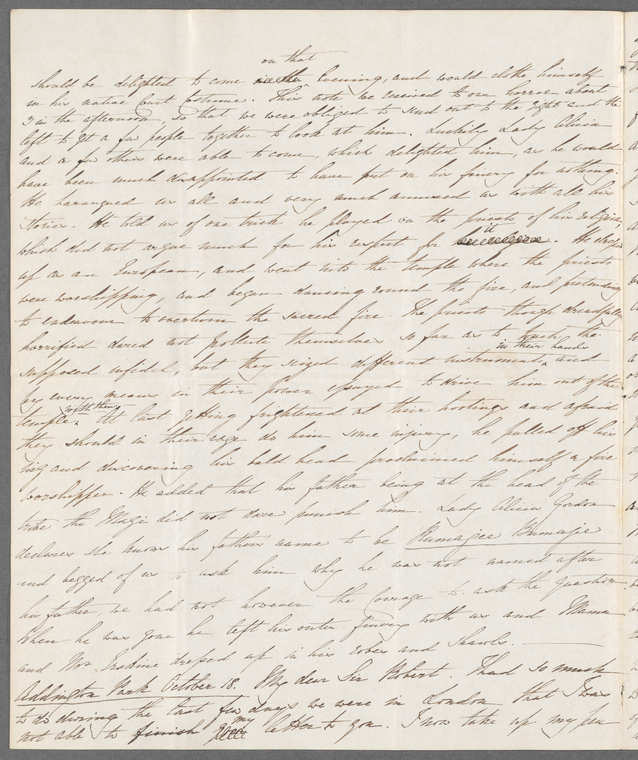 on that
should be delighted to come Evening, and would clothe himself
in his native Court Costume. This note we received to our horror about
3 in the afternoon, so that we were obliged to send out to the right and the
left to get a few people together to look at him. Luckily Lady Alicia
and a few others were able to come, which delighted him, as he would
have been much disappointed to have put on his finery for nothing.
He harangued us all and very much amused us with all his
stories. He told us of one trick he played on the priests of his religion,
it
which did not argue much for his respect for. He dressed
up as an European, and went into the temple where the priests
were worshipping, and began dancing round the fire, and pretending
to endeavour to overturn the sacred fire. The priests though dreadfully
horrified dared not pollute themselves so far as to touch the
in their hands
supposed infidel, but they seized different instruments and
by every means in their power essayed to drive him out of the
with them
temple. At last getting frightened at their hootings and afraid
they should in their rage do him some injury, he pulled off his
wig and discovering his bald head proclaimed himself a fire
worshipper. He added that his father being at the head of the
tribe the Magi did not dare punish him. Lady Alicia Gordon
declares she knows his father's name to be Rumajee Bumajee
and begged of us to ask him why he was not named after
his father, we had not however the courage to ask the question
When he was gone he left his outer finery with us and Mama
and Mrs Erskine dressed up in his robes and shawls.
Addington Park October 18. My dear Sir Robert. I had so much
to do during the last few days we were in London that I was
my
not able to finish letter to you. I now take up my pen